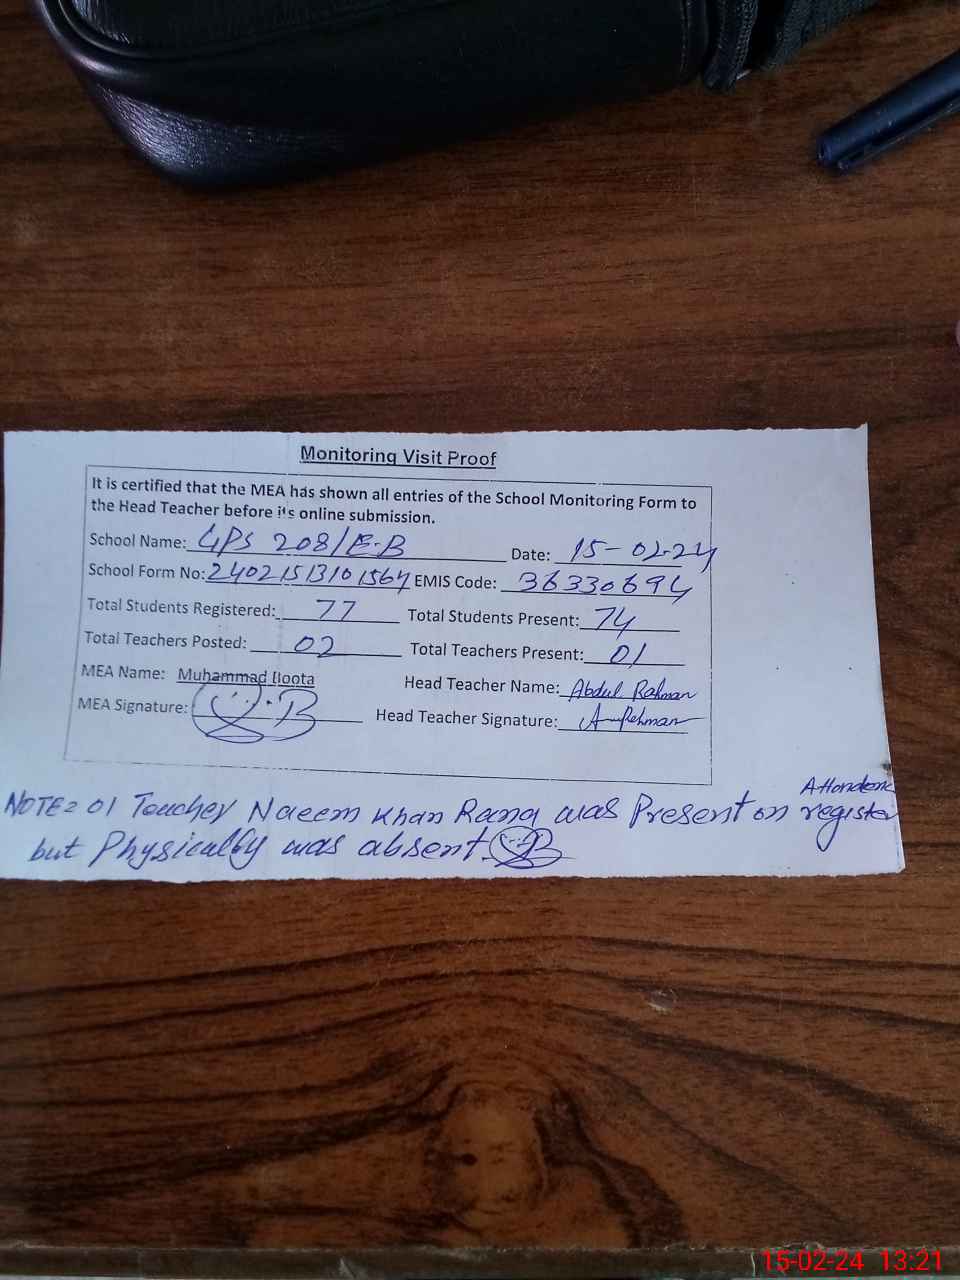 Monitoring Visit Proof
It is certified that the MEA has shown all entries of the School Monitoring Form to
the Head Teacher before its online submission.
School Name: GPS 208/E-B Date: 15-02-24
School Form No: 2402151310 1564 EMIS Code: 36330694
Total Students Registered: 77 Total Students Present: 74
Total Teachers Posted: 02 Total Teachers Present: 01
MEA Name: Muhammad Boota Head Teacher Name: Abdul Rahman
MEA Signature: Head Teacher Signature: A-Rehman
NOTE= 01 Teacher Naeem Khan Rana was Present on Attendenc register
but Physically was absent.
15-02-24 13:21